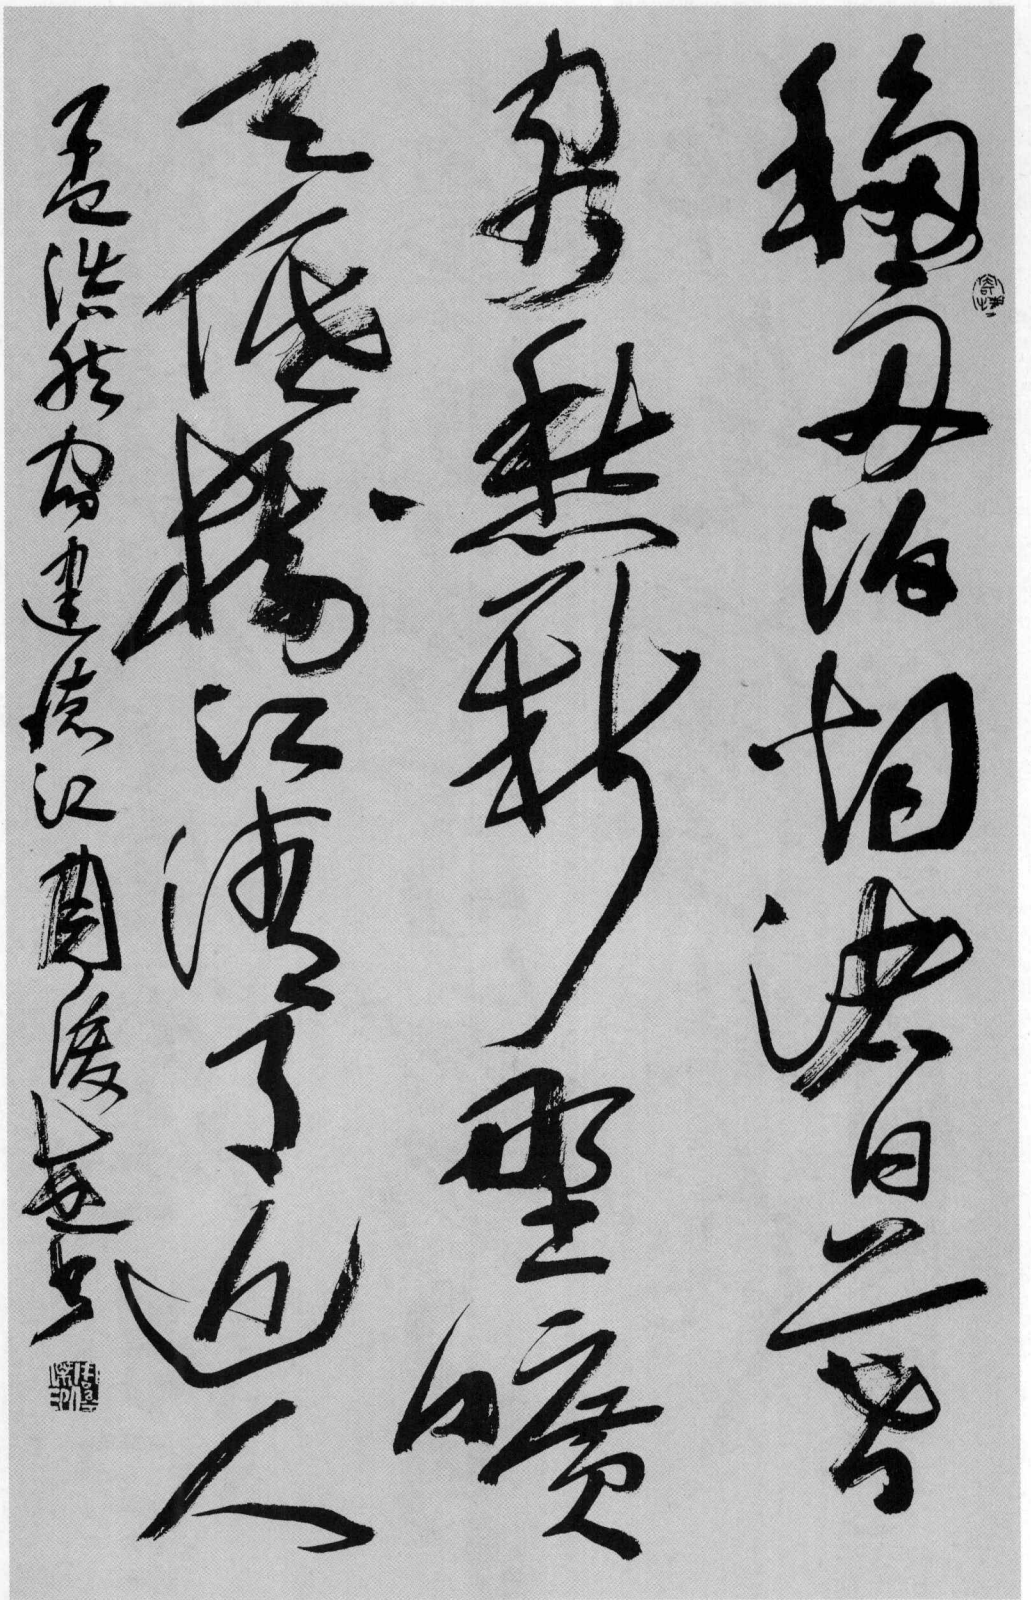 移舟泊烟渚日暮
客愁新野曠
天低樹江清月近人
孟浩然宿建德江 周俊杰书